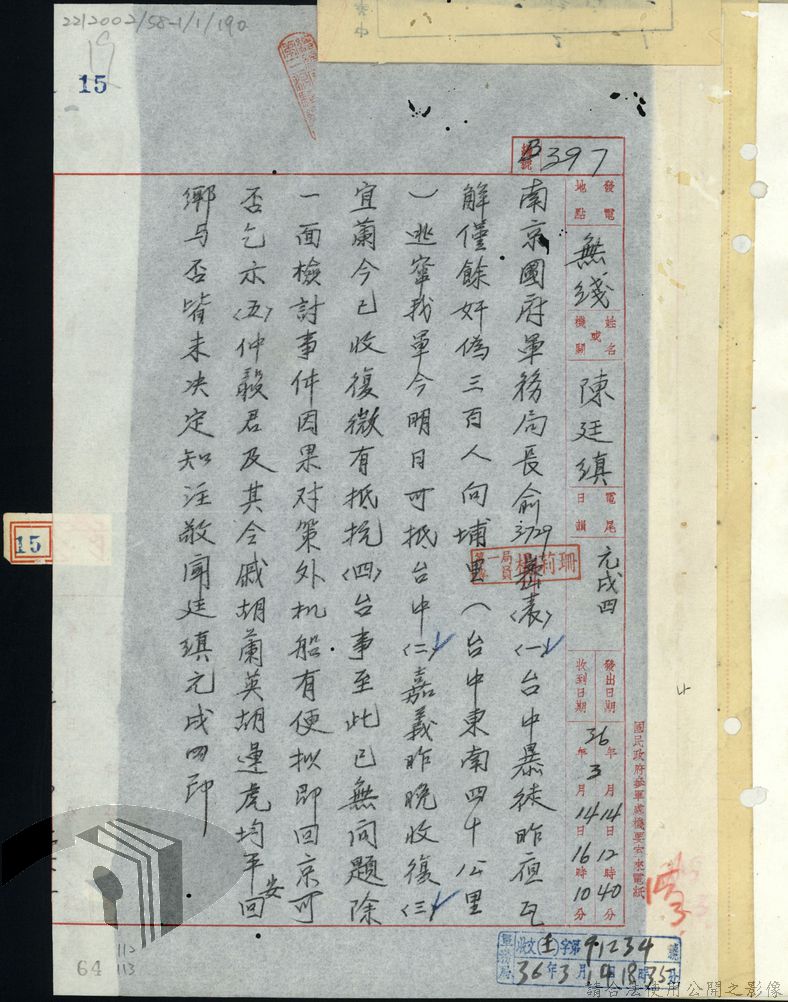 22/2002/58-1/1/190
19
15
397
發電地點
無綫
姓名或機關
陳廷縝
電尾日韻
元戌四
發出日期
36年3月14日12時40分
收到日期
14日16時10分
國民政府參軍處機要室來電紙
南京國府軍務局長俞3729 〈表〉〈一〉台中暴徒昨夜瓦
解僅餘奸偽三百人向埔里(台中東南四十公里
)逃竄我軍今明日可抵台中〈二〉嘉義昨晚收復〈三〉
宜蘭今已收復微有抵抗〈四〉台事至此已無问題除
一面檢討事件因果对策外机船有便拟即回京可
否乞示〈五〉仲毅君及其令戚胡蘭英胡運虎均平安回
鄉与否皆未决定知注敬聞廷縝元戌四印
第一局局員楊莉珊
軍務局
收文(壬)字第91234號
36年3月14日18時35分
15
64
112
113
請合法使用公開之影像